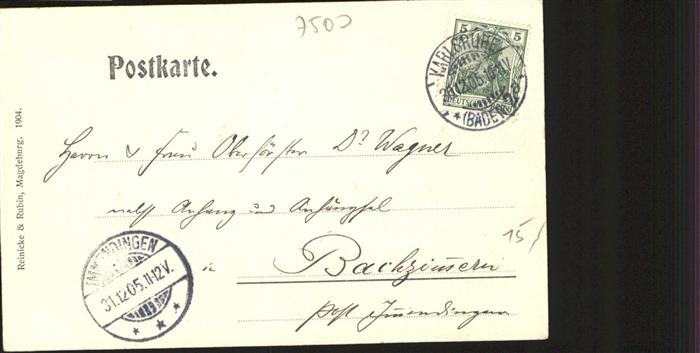 7503
Postkarte.
5 5
DEUTSCHES REICH
KARLSRUHE
31.12.05.
(BADEN) 2
Herrn & Frau Oberförster Dr Wagner
nebst Anhang und Anhängsel
in Bachzimmern
Post Immendingen
15/
IMMENDINGEN
31.12.05.11-12V.
Reinicke & Rubin, Magdeburg. 1904.